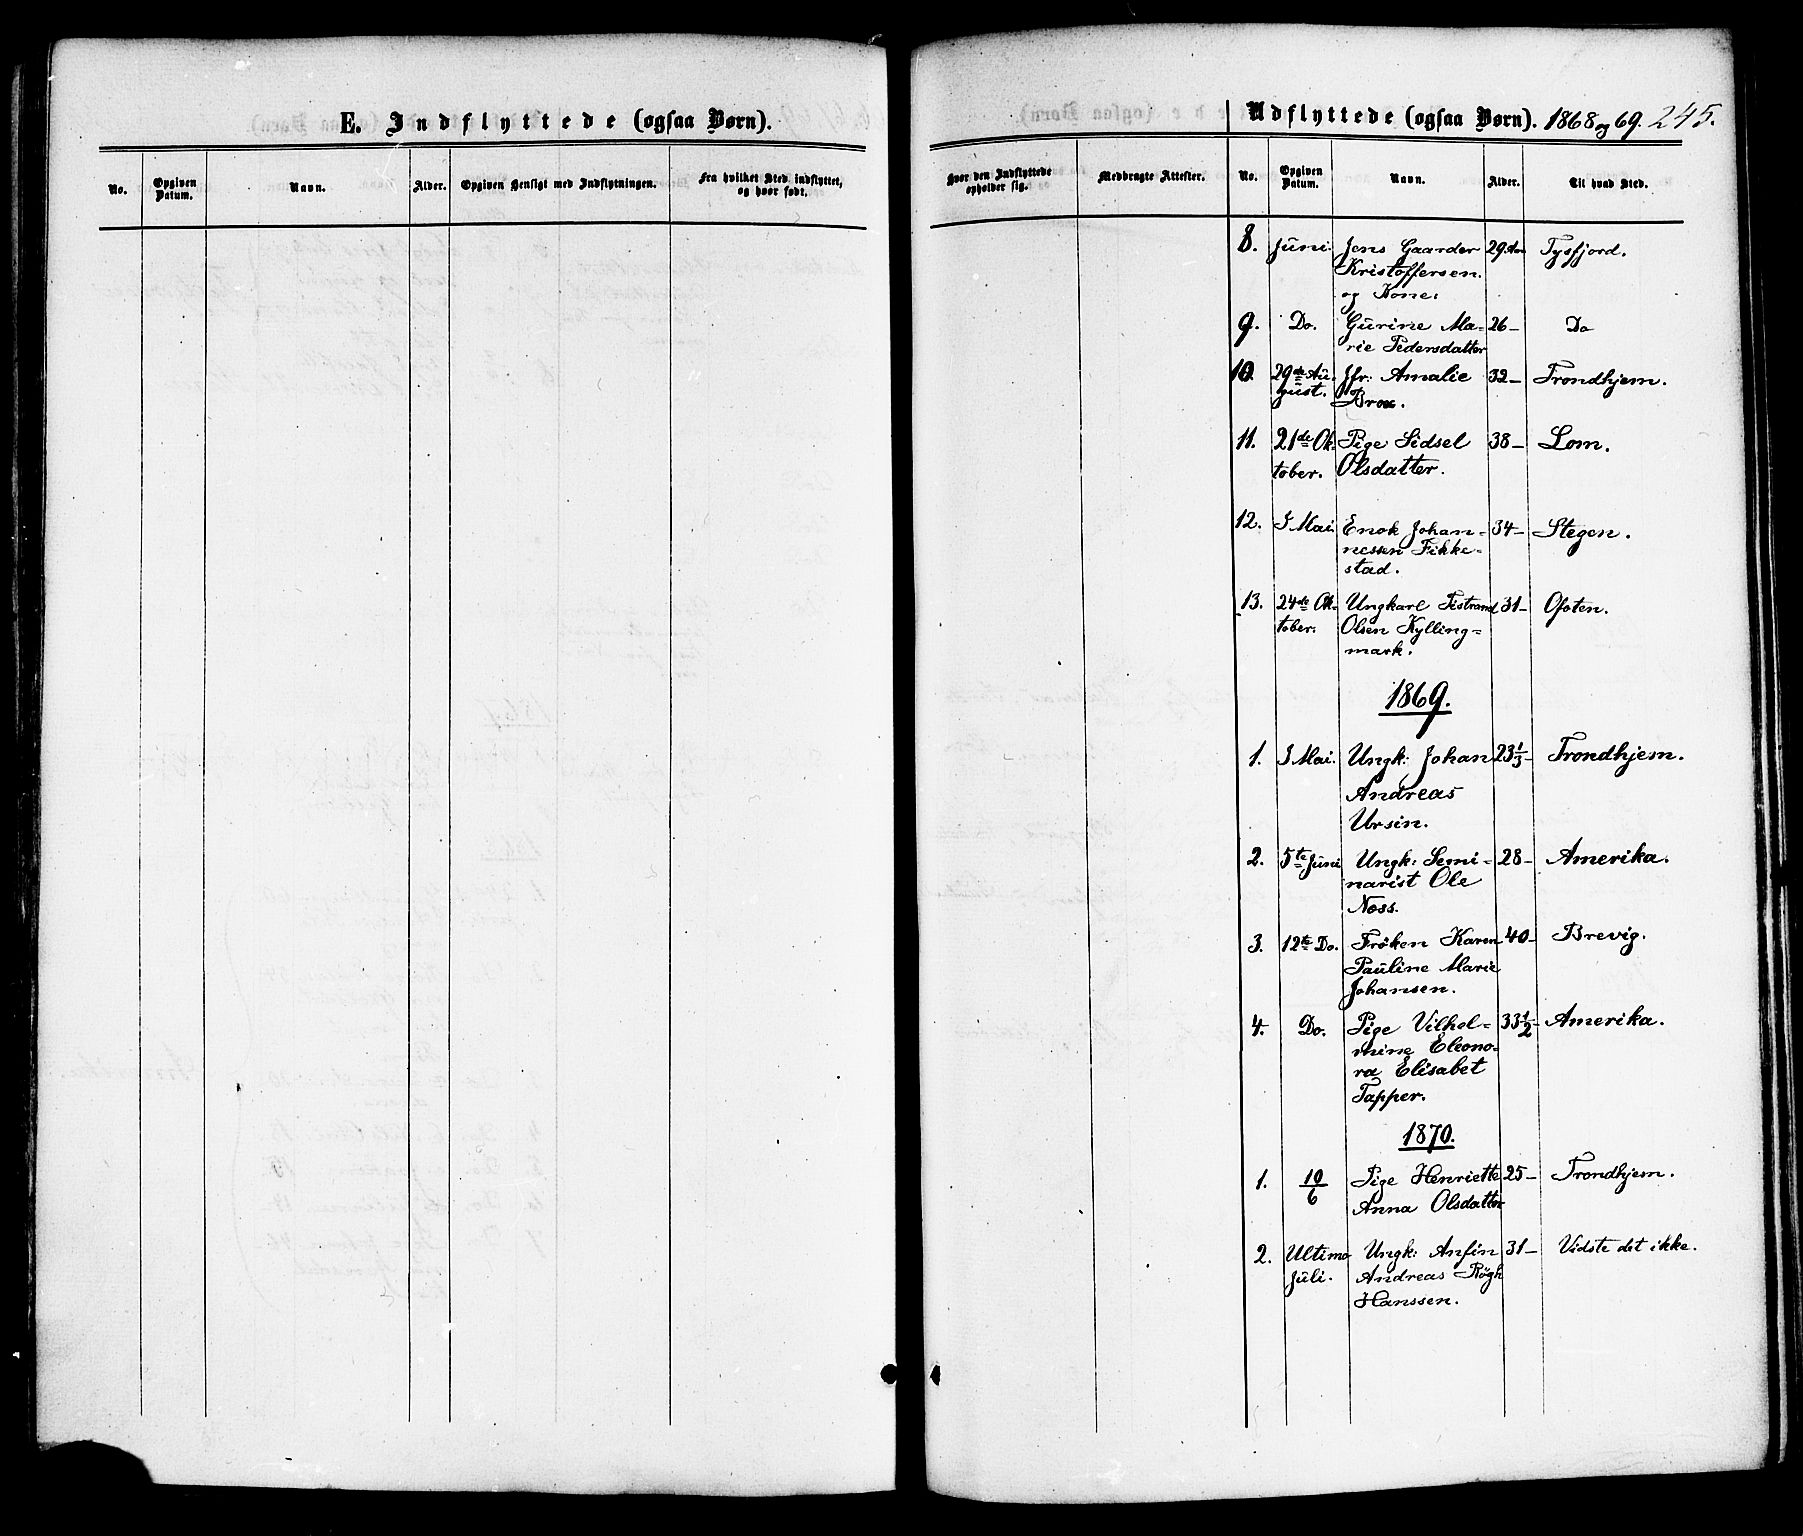 E. Indflyttede (ogsaa Børn).
No.
Opgiven
Datum.
Navn.
Alder.
Opgiven Hensigt med Indflytningen.
Fra hvilket Sted indflyttet,
og hvor født.
Udflyttede (ogsaa Børn). 1868 og 69. 245.
Hvor den Indflyttede
opholder sig.
Medbragte Attester.
No.
Opgiven
Datum.
Navn.
Alder.
Til hvad Sted.
8. Juni. Jens Gaarder 29 Tysfjord.
Kristoffersen
og Kone:
9. Do. Gurine Ma- 26- Do
rie Pedersdatter
10. 29de Au- Jfr: Amalie 32- Trondhjem.
gust. Brox.
11. 21de Ok- Pige Sidsel 38- Lom.
tober. Olsdatter.
12. I Mai. Enok Johan- 34- Stegen.
nessen Fikke-
stad.
13. 24de Ok- Ungkarl Tistrand 31- Ofoten.
tober. Olsen Kylling-
mark.
1869.
1. I Mai. Ungk: Johan 23 1/3- Trondhjem.
Andreas
Ursin.
2. 5te Juni Ungk: Semi- 28- Amerika.
narist Ole
Noss.
3. 12te Do. Frøken Karen 40- Brevig.
Pauline Marie
Johansen.
4. Do. Pige Vilhel- 33 1/2- Amerika.
mine Eleono-
ra Elisabet
Tapper.
1870.
1. 10/6 Pige Henriette 25- Trondhjem.
Anna Olsdatter
2. Ultimo Ungk: Anfin 31- Vidste det ikke.
Juli. Andreas Røgh
Hanssen.